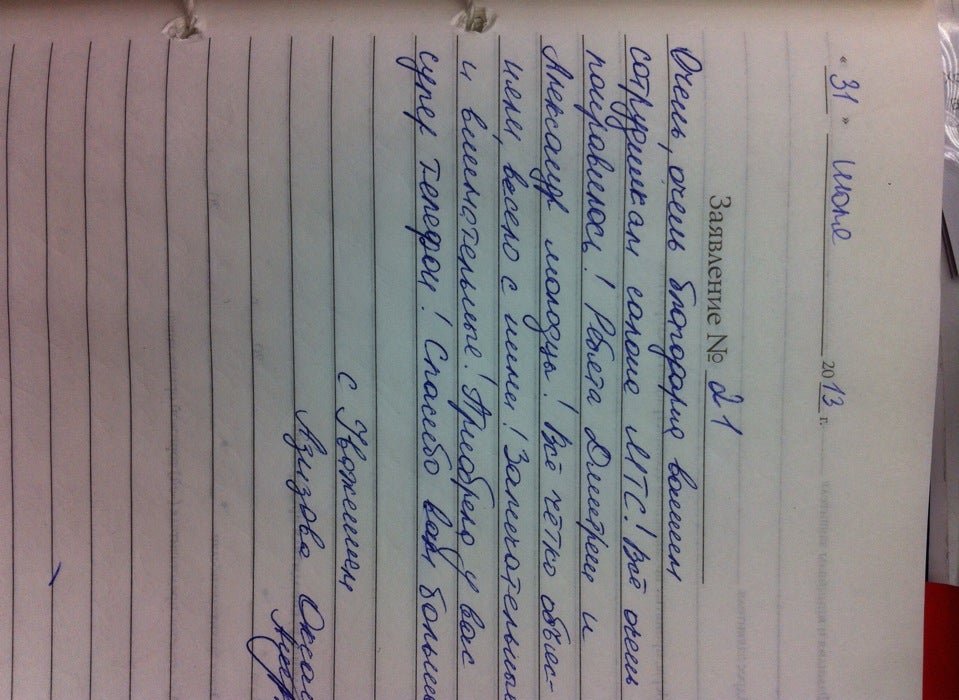 « 31 » июля 2013 г.
Заявление № 21
Очень, очень благодарна вашим
сотрудникам салона МТС! Всё очень
понравилось! Ребята Дмитрий и
Александр молодцы! Всё чётко объяс-
нили, весело с ними! Замечательные
и внимательные! Приобрела у вас
супер телефон! Спасибо вам больш
с Уважением
Азизова Окса